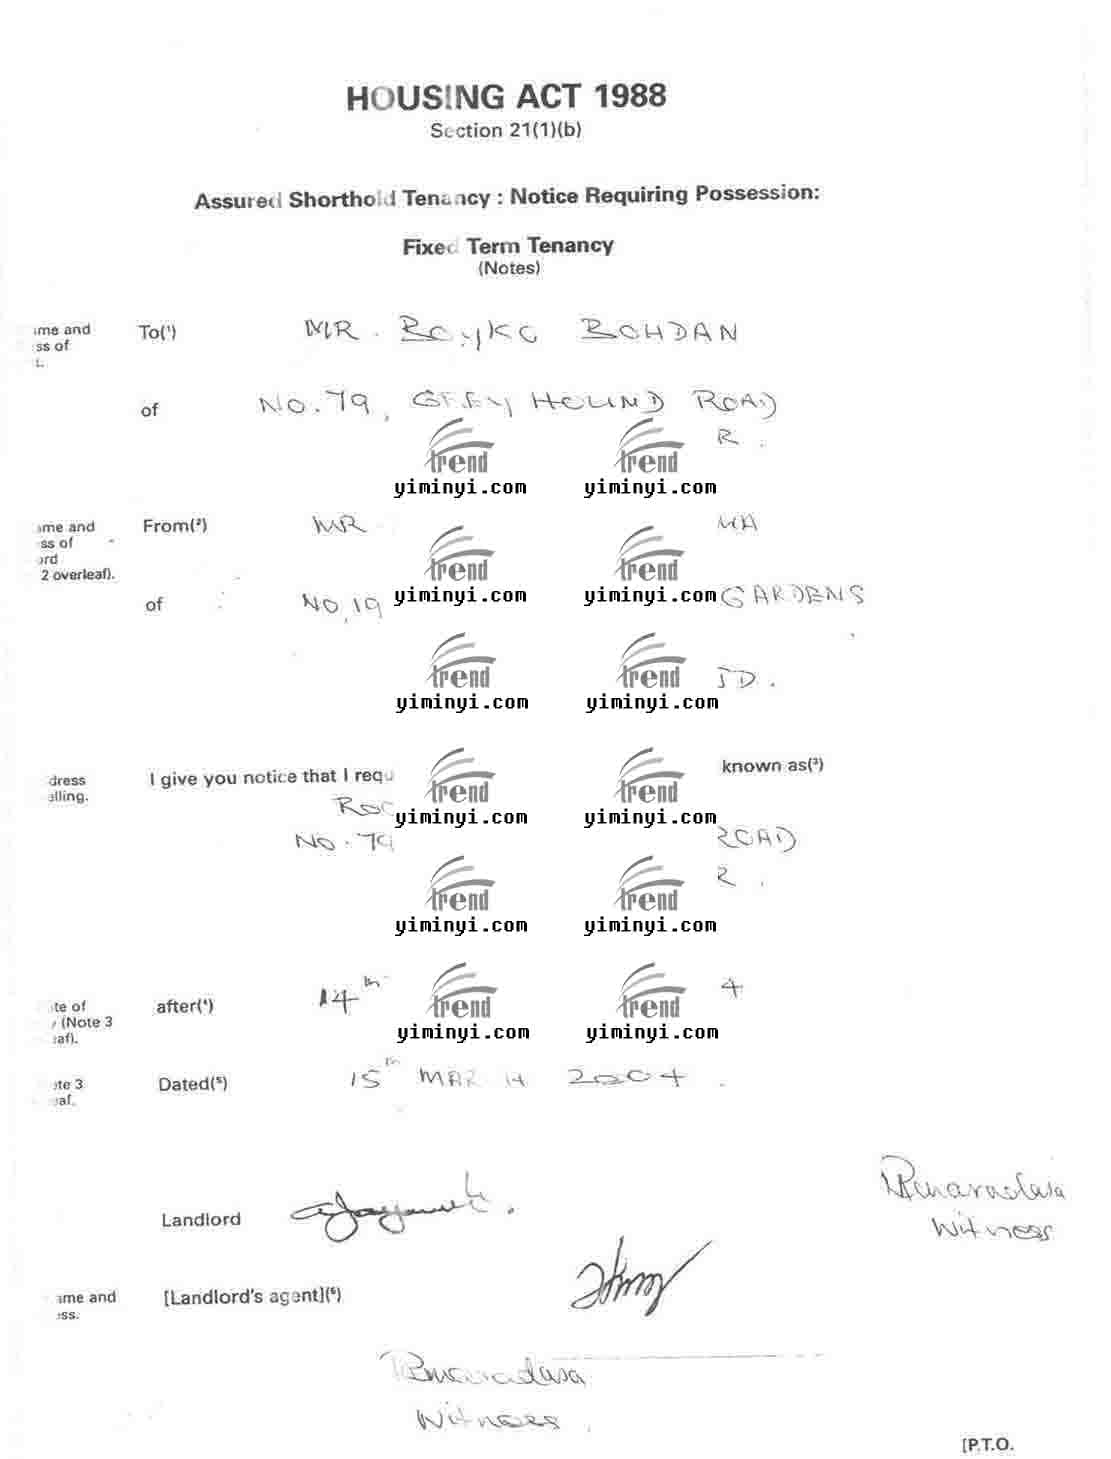 HOUSING ACT 1988
Section 21(1)(b)
Assured Shorthold Tenancy : Notice Requiring Possession:
Fixed Term Tenancy
(Notes)
ame and
ss of
To(¹) MR. BOYKO BOHDAN
of NO. 79, GREY HOUND ROAD
R.
trend trend
yiminyi.com yiminyi.com
ame and
ss of
ord
2 overleaf).
From(²) MR MA
trend trend
of NO, 19 yiminyi.com yiminyi.com GARDENS
trend trend JD.
yiminyi.com yiminyi.com
dress
elling.
I give you notice that I requ known as(³)
trend trend
ROO yiminyi.com yiminyi.com
NO. 79 ROAD
R.
trend trend
yiminyi.com yiminyi.com
te of
y (Note 3
eaf).
after(⁴) 14th 4
trend trend
yiminyi.com yiminyi.com
ote 3
eaf.
Dated(⁵) 15th MARCH 2004.
Landlord
Witness
ame and
ess.
[Landlord's agent](⁶)
Witness
[P.T.O.